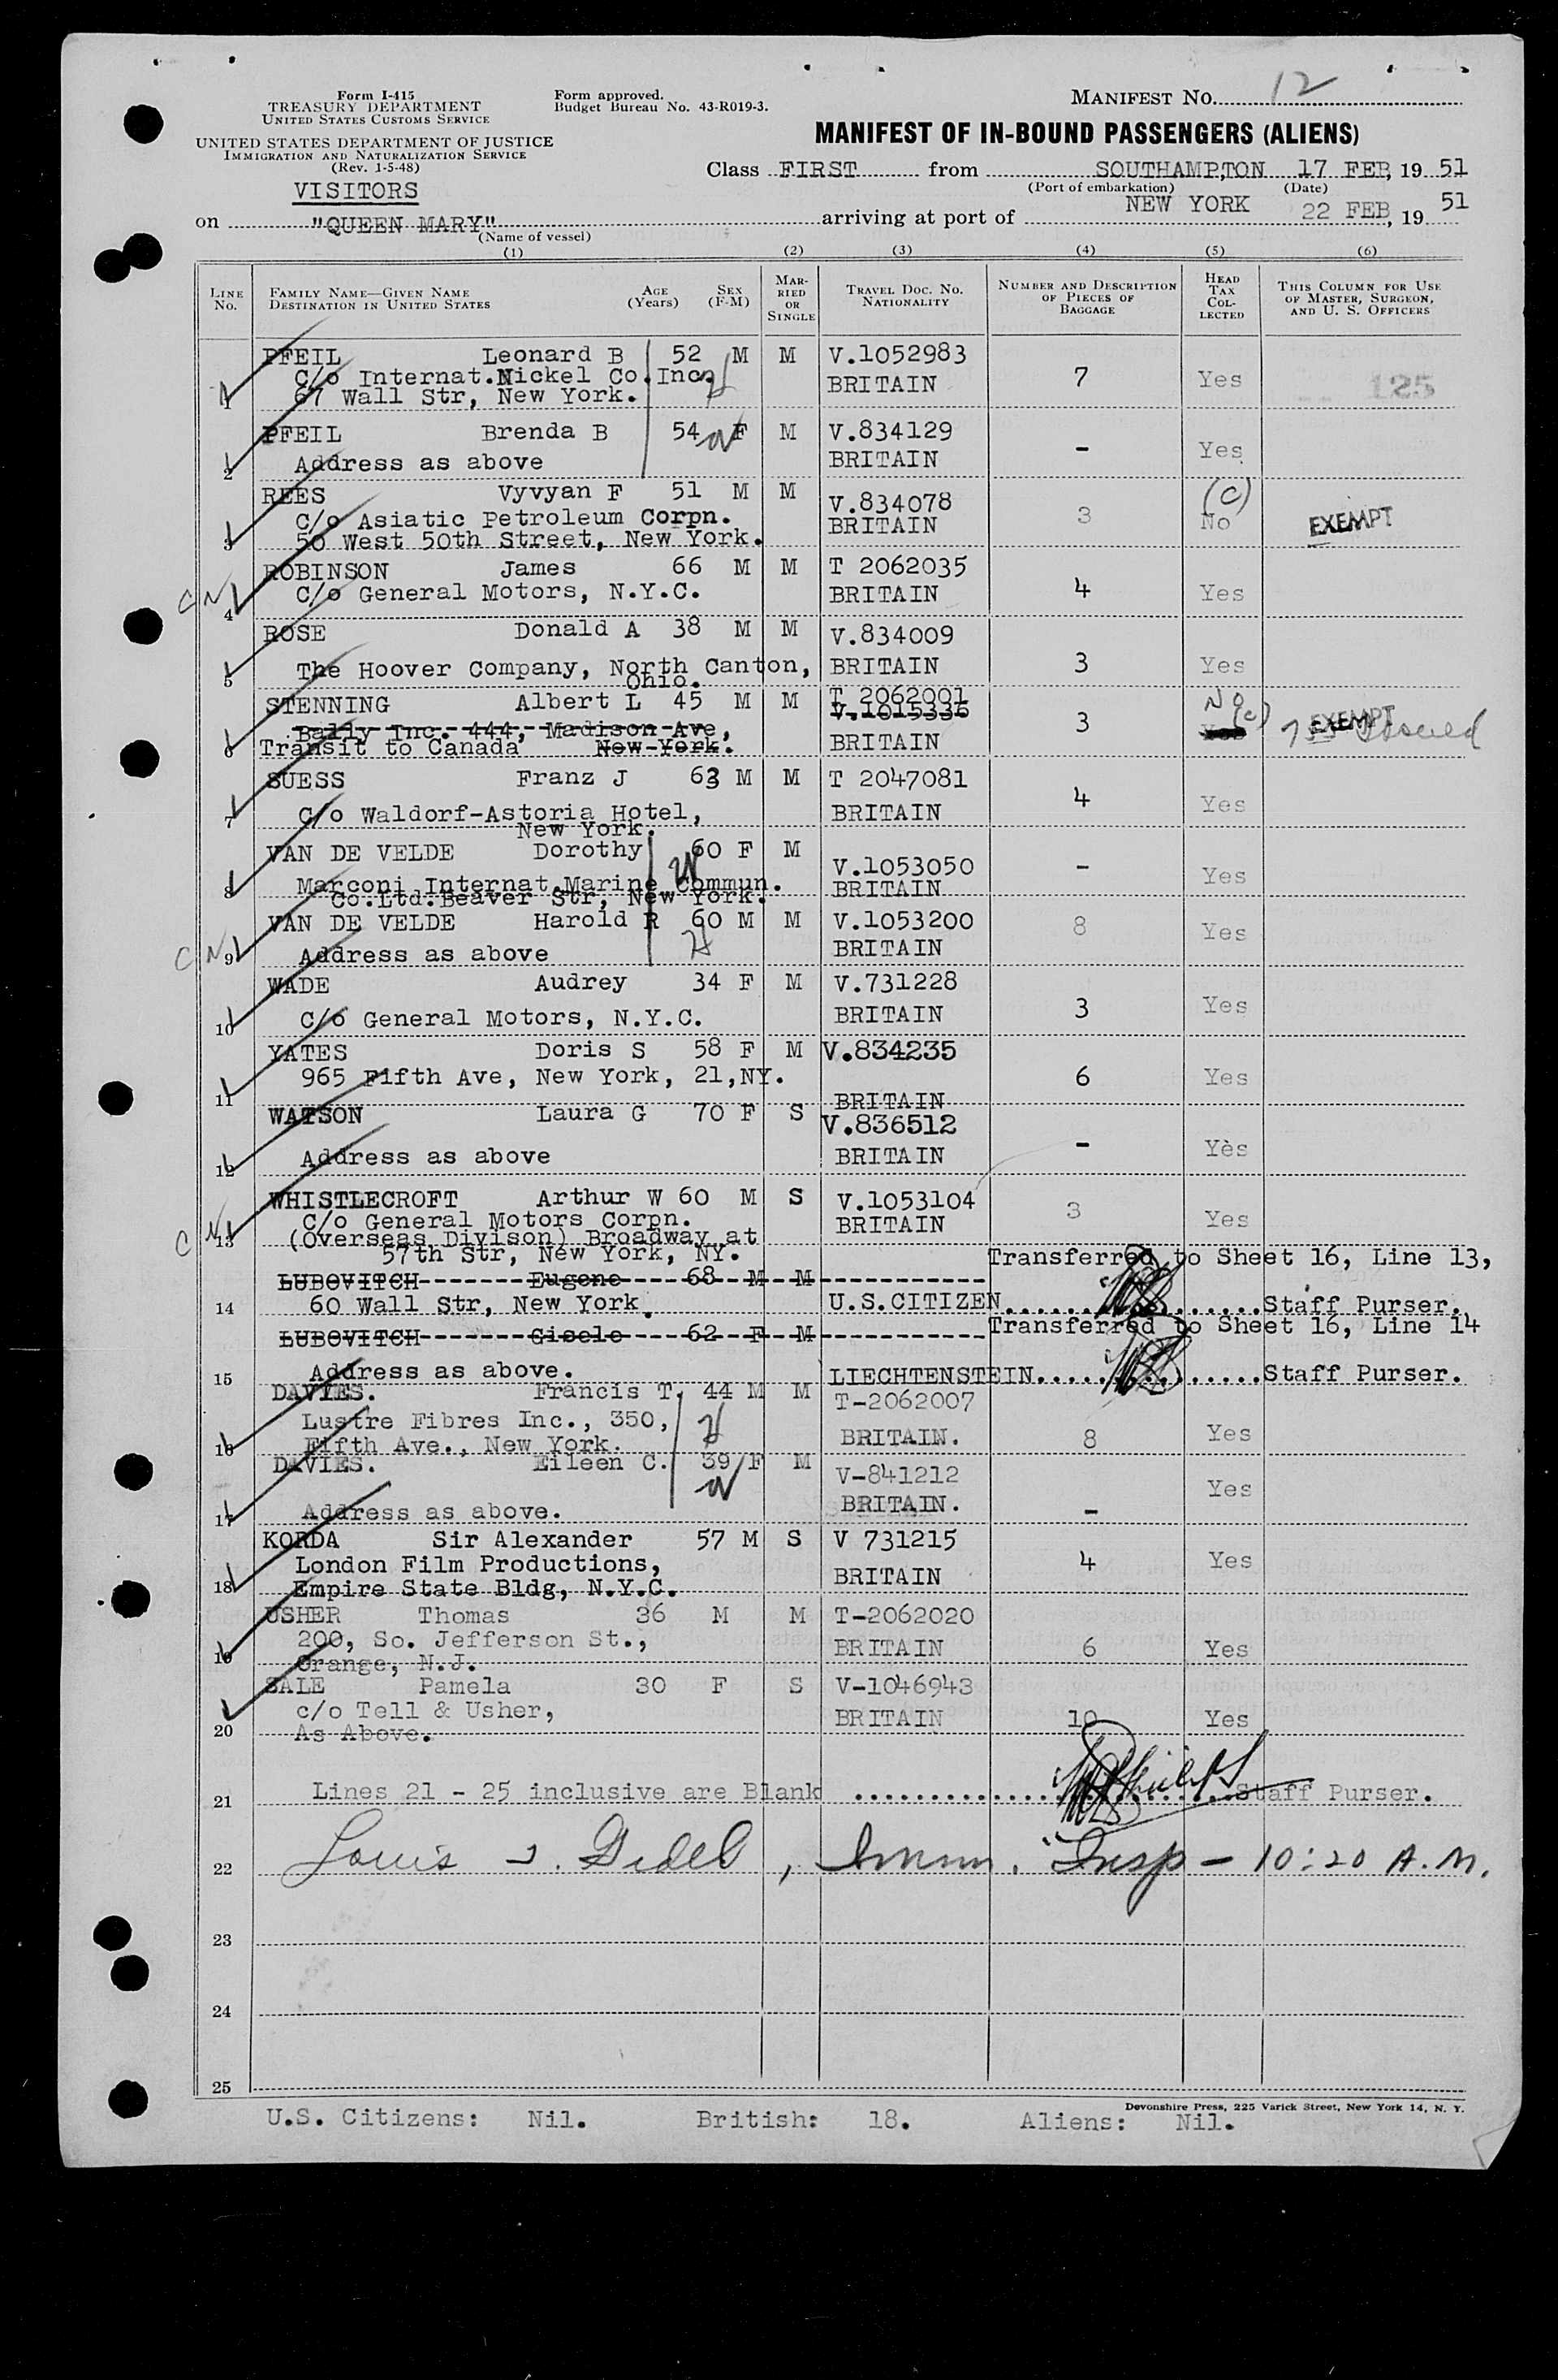 Form I-415
TREASURY DEPARTMENT
UNITED STATES CUSTOMS SERVICE
UNITED STATES DEPARTMENT OF JUSTICE
IMMIGRATION AND NATURALIZATION SERVICE
(Rev. 1-5-48)
VISITORS
Form approved.
Budget Bureau No. 43-R019-3.
MANIFEST NO. 12
MANIFEST OF IN-BOUND PASSENGERS (ALIENS)
Class FIRST from SOUTHAMPTON 17 FEB, 19 51
(Port of embarkation) (Date)
on "QUEEN MARY" arriving at port of NEW YORK 22 FEB, 19 51
(Name of vessel)
(1) (2) (3) (4) (5) (6)
LINE NO. FAMILY NAME—GIVEN NAME DESTINATION IN UNITED STATES AGE (Years) SEX (F-M) MARRIED OR SINGLE TRAVEL DOC. NO. NATIONALITY NUMBER AND DESCRIPTION OF PIECES OF BAGGAGE HEAD TAX COLLECTED THIS COLUMN FOR USE OF MASTER, SURGEON, AND U. S. OFFICERS
PFEIL Leonard B 52 M M V.1052983
C/o Internat.Nickel Co.Inc. BRITAIN 7 Yes 125
1 67 Wall Str, New York.
PFEIL Brenda B 54 F M V.834129
2 Address as above BRITAIN - Yes
REES Vyvyan F 51 M M V.834078 (C)
C/o Asiatic Petroleum Corpn. BRITAIN 3 No EXEMPT
3 50 West 50th Street, New York.
ROBINSON James 66 M M T 2062035
C N 4 C/o General Motors, N.Y.C. BRITAIN 4 Yes
ROSE Donald A 38 M M V.834009
5 The Hoover Company, North Canton, BRITAIN 3 Yes
Ohio.
STENNING Albert L 45 M M T 2062001 No (c)
V.1015335
Bally Inc. 444, Madison Ave, 3 EXEMPT
6 Transit to Canada New York. BRITAIN Issued
SUESS Franz J 63 M M T 2047081
7 C/o Waldorf-Astoria Hotel, BRITAIN 4 Yes
New York.
VAN DE VELDE Dorothy 60 F M V.1053050
Marconi Internat.Marine Commun. BRITAIN - Yes
8 Co.Ltd.Beaver Str, New York.
VAN DE VELDE Harold R 60 M M V.1053200
C N 9 Address as above BRITAIN 8 Yes
WADE Audrey 34 F M V.731228
10 C/o General Motors, N.Y.C. BRITAIN 3 Yes
YATES Doris S 58 F M V.834235
11 965 Fifth Ave, New York, 21,NY. BRITAIN 6 Yes
WATSON Laura G 70 F S V.836512
12 Address as above BRITAIN - Yès
WHISTLECROFT Arthur W 60 M S V.1053104
C/o General Motors Corpn. BRITAIN 3 Yes
C N 13 (Overseas Divison) Broadway at
57th Str, New York, NY.
LUBOVITCH Eugene 68 M M Transferred to Sheet 16, Line 13,
14 60 Wall Str, New York. U.S.CITIZEN Staff Purser.
LUBOVITCH Gisele 62 F M Transferred to Sheet 16, Line 14
15 Address as above. LIECHTENSTEIN Staff Purser.
DAVIES. Francis T. 44 M M T-2062007
Lustre Fibres Inc., 350,
16 Fifth Ave., New York. BRITAIN. 8 Yes
DAVIES. Eileen C. 39 F M V-841212
17 Address as above. BRITAIN. - Yes
KORDA Sir Alexander 57 M S V 731215
London Film Productions,
18 Empire State Bldg, N.Y.C. BRITAIN 4 Yes
USHER Thomas 36 M M T-2062020
200, So. Jefferson St.,
19 Orange, N.J. BRITAIN 6 Yes
SALE Pamela 30 F S V-1046943
c/o Tell & Usher,
20 As Above. BRITAIN 10 Yes
21 Lines 21 - 25 inclusive are Blank Staff Purser.
22 Louis Immn. Insp - 10:20 A.M.
23
24
25
Devonshire Press, 225 Varick Street, New York 14, N. Y.
U.S. Citizens: Nil. British: 18. Aliens: Nil.